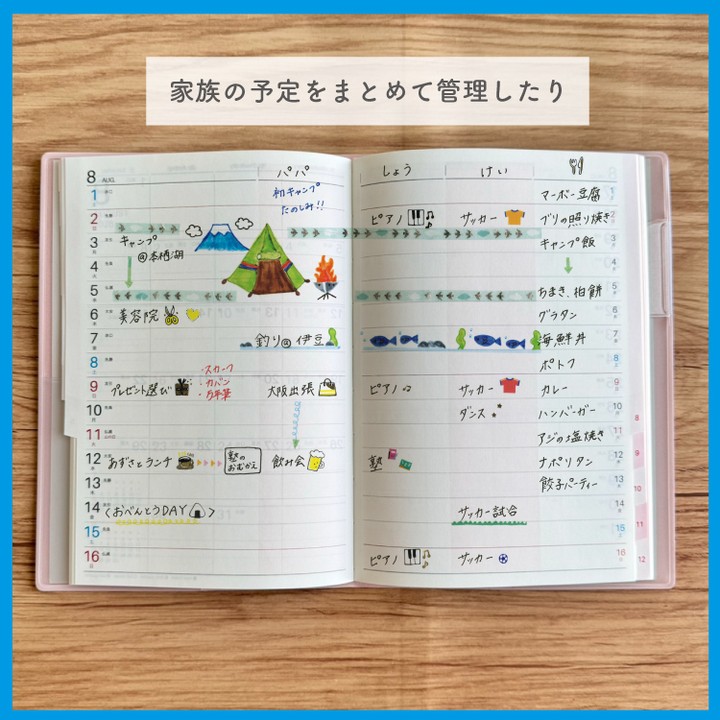 家族の予定をまとめて管理したり
8 AUG.
パパ
しょう
けい
1
初キャンプ
たのしみ!!
マーボー豆腐
2
ピアノ
サッカー
ブリの照り焼き
3
キャンプ
@本栖湖
キャンプ飯
4
5
ちまき、柏餅
6
美容院
グラタン
7
釣り@伊豆
海鮮丼
8
ポトフ
9
プレゼント選び
・スカーフ
・カバン
・万年筆
大阪出張
ピアノ
サッカー
カレー
10
ダンス
ハンバーガー
11
アジの塩焼き
12
あずさとランチ
塾の
おむかえ
飲み会
塾
ナポリタン
13
餃子パーティー
14
〈おべんとうDAY〉
サッカー試合
15
16
ピアノ
サッカー